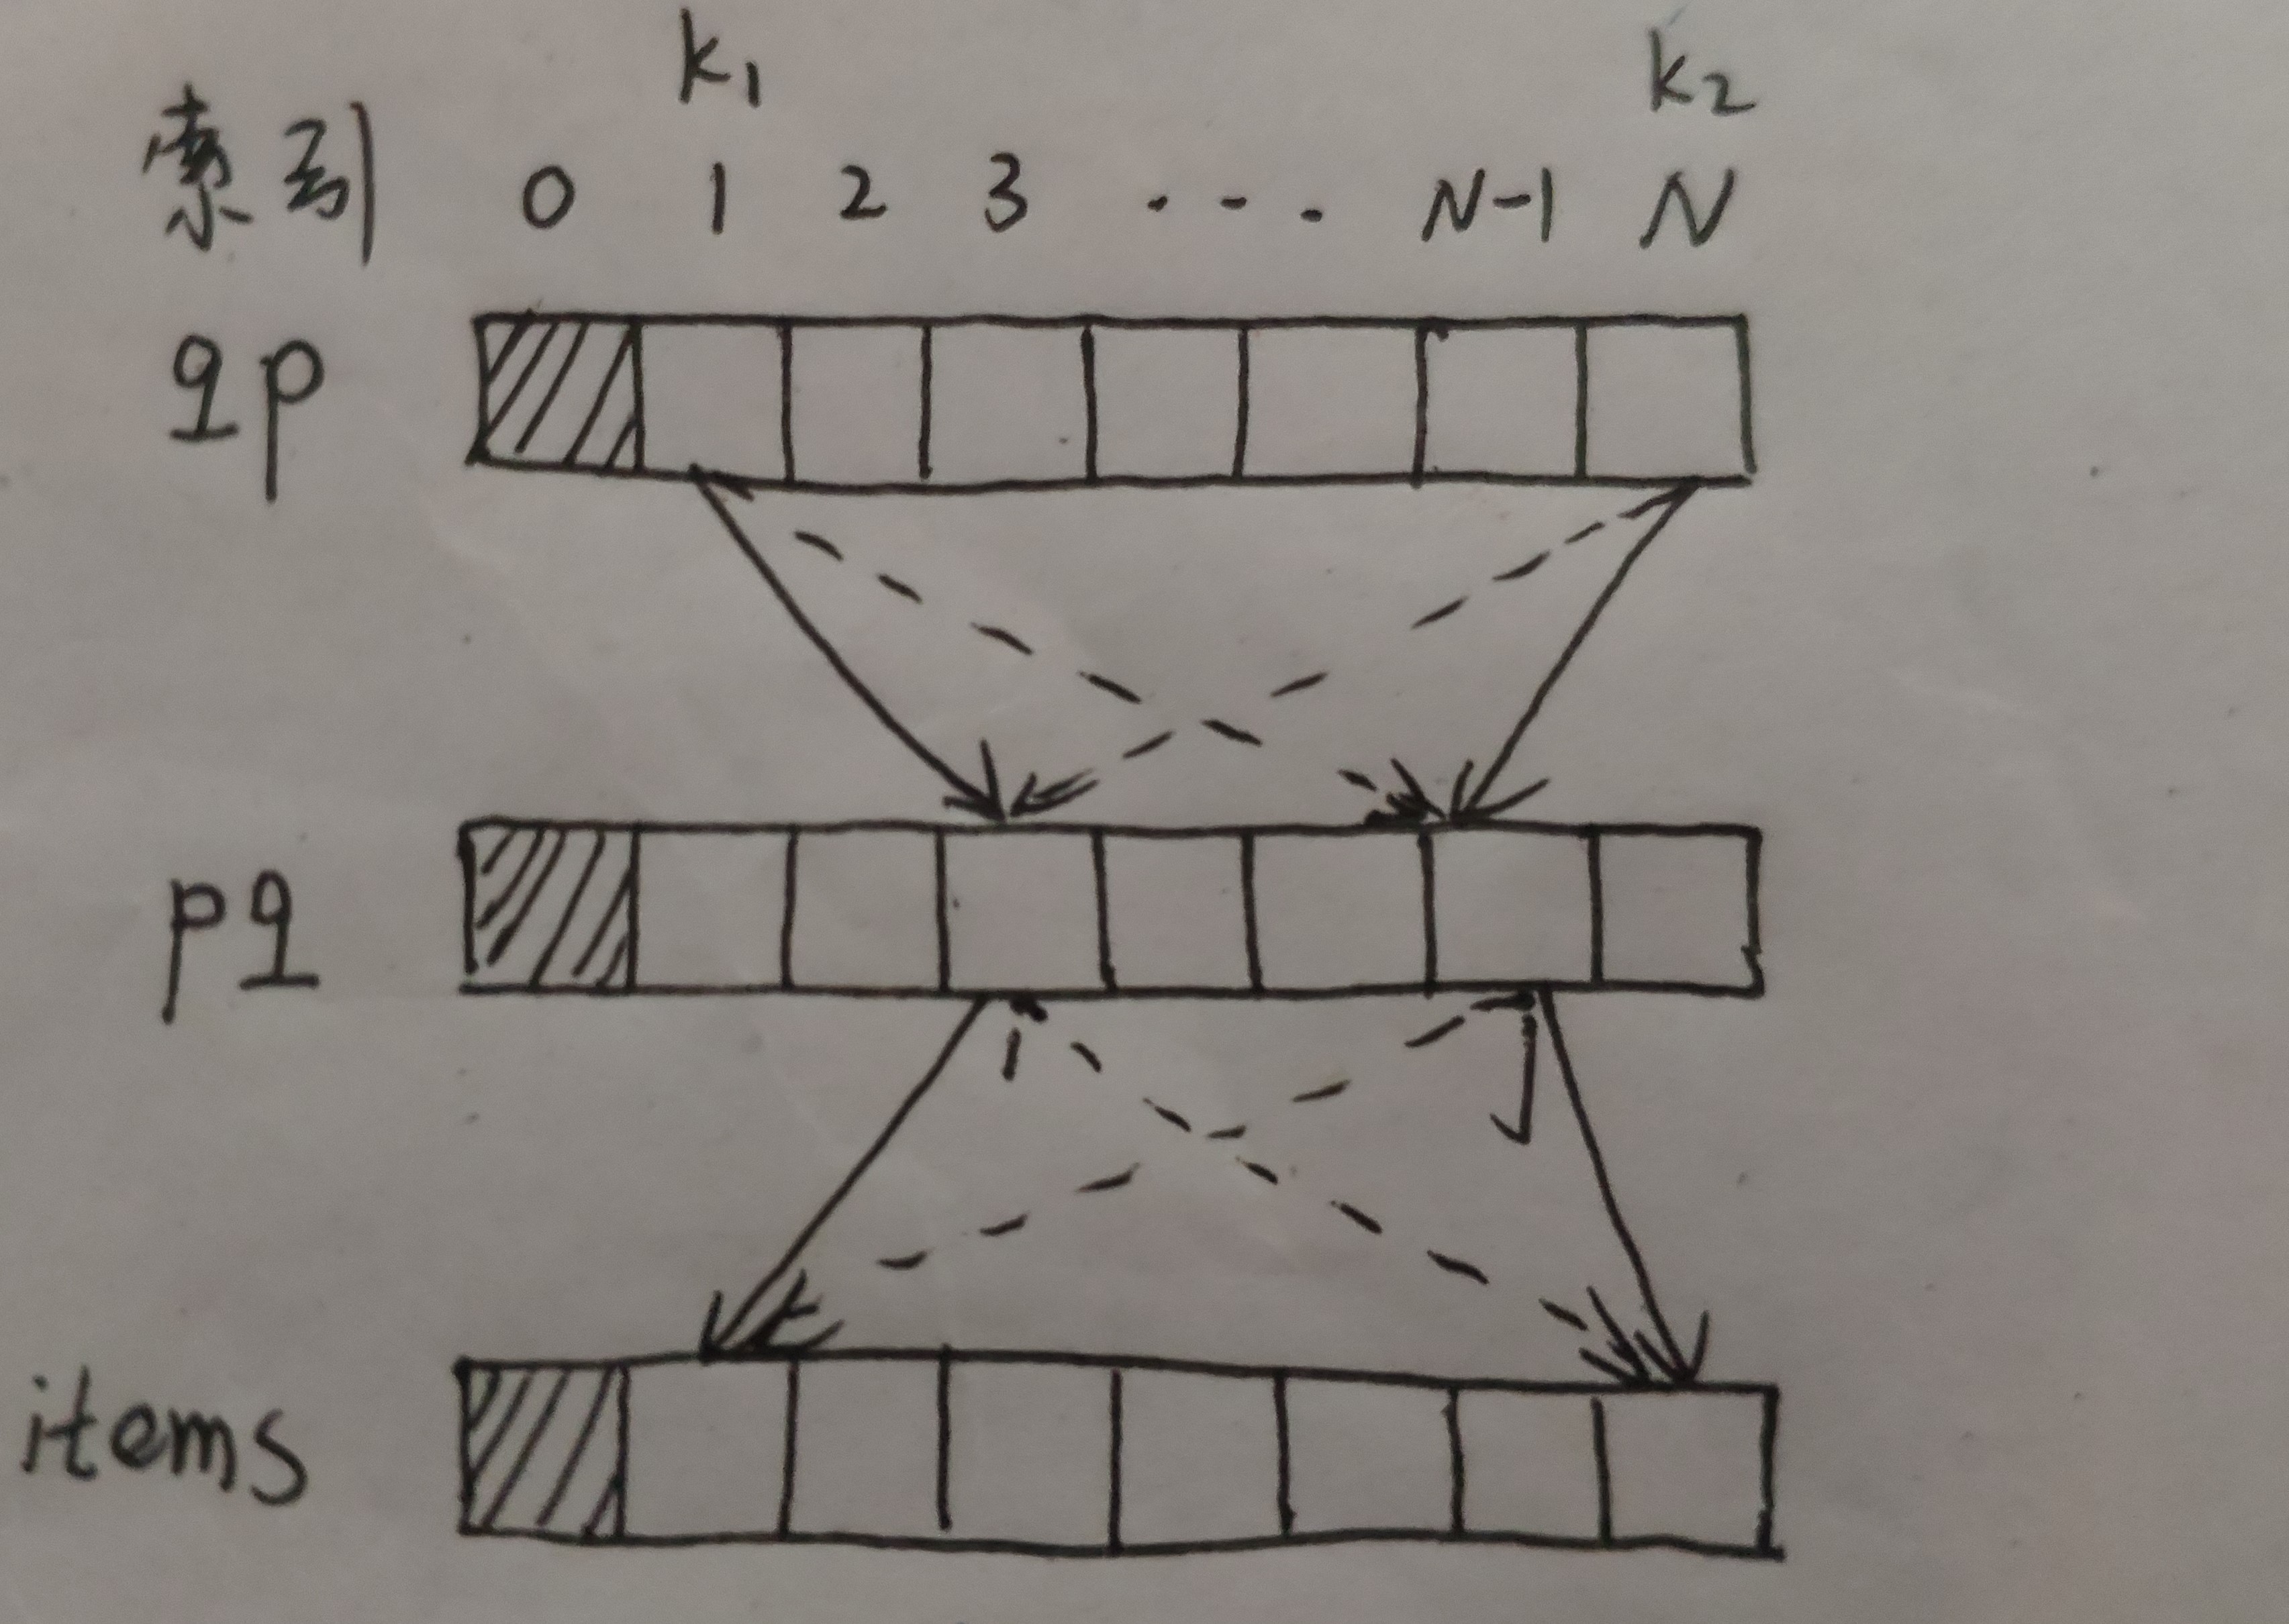 k₁ k₂
索引 0 1 2 3 ... N-1 N
qp
pq
i j
items